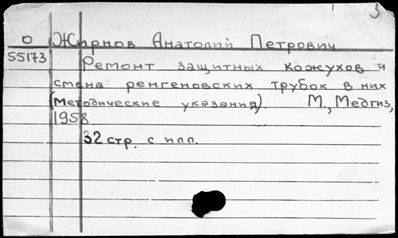 3
О Жирнов Анатолий Петрович
55173 Ремонт защитных кожухов и
смена ренгеновских трубок в них
(методические указания). М., Медгиз,
1958
32 стр. с илл.